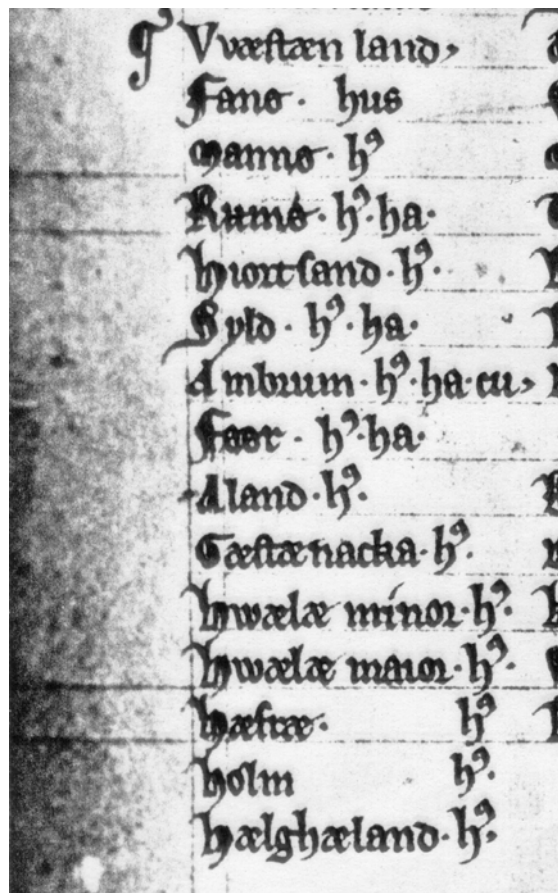 ¶ Vvæstæn land.
Fanø . hus
Mannø . hꝰ
Rumø . hꝰ . ha .
hiortsand . hꝰ .
Syld . hꝰ . ha .
Ambrum . hꝰ . ha . cu .
Føør . hꝰ . ha .
Aland . hꝰ .
Gæstænacka . hꝰ .
hwælæ minor . hꝰ .
hwælæ maior . hꝰ .
hæfræ . hꝰ
holm hꝰ .
hælghæland . hꝰ .